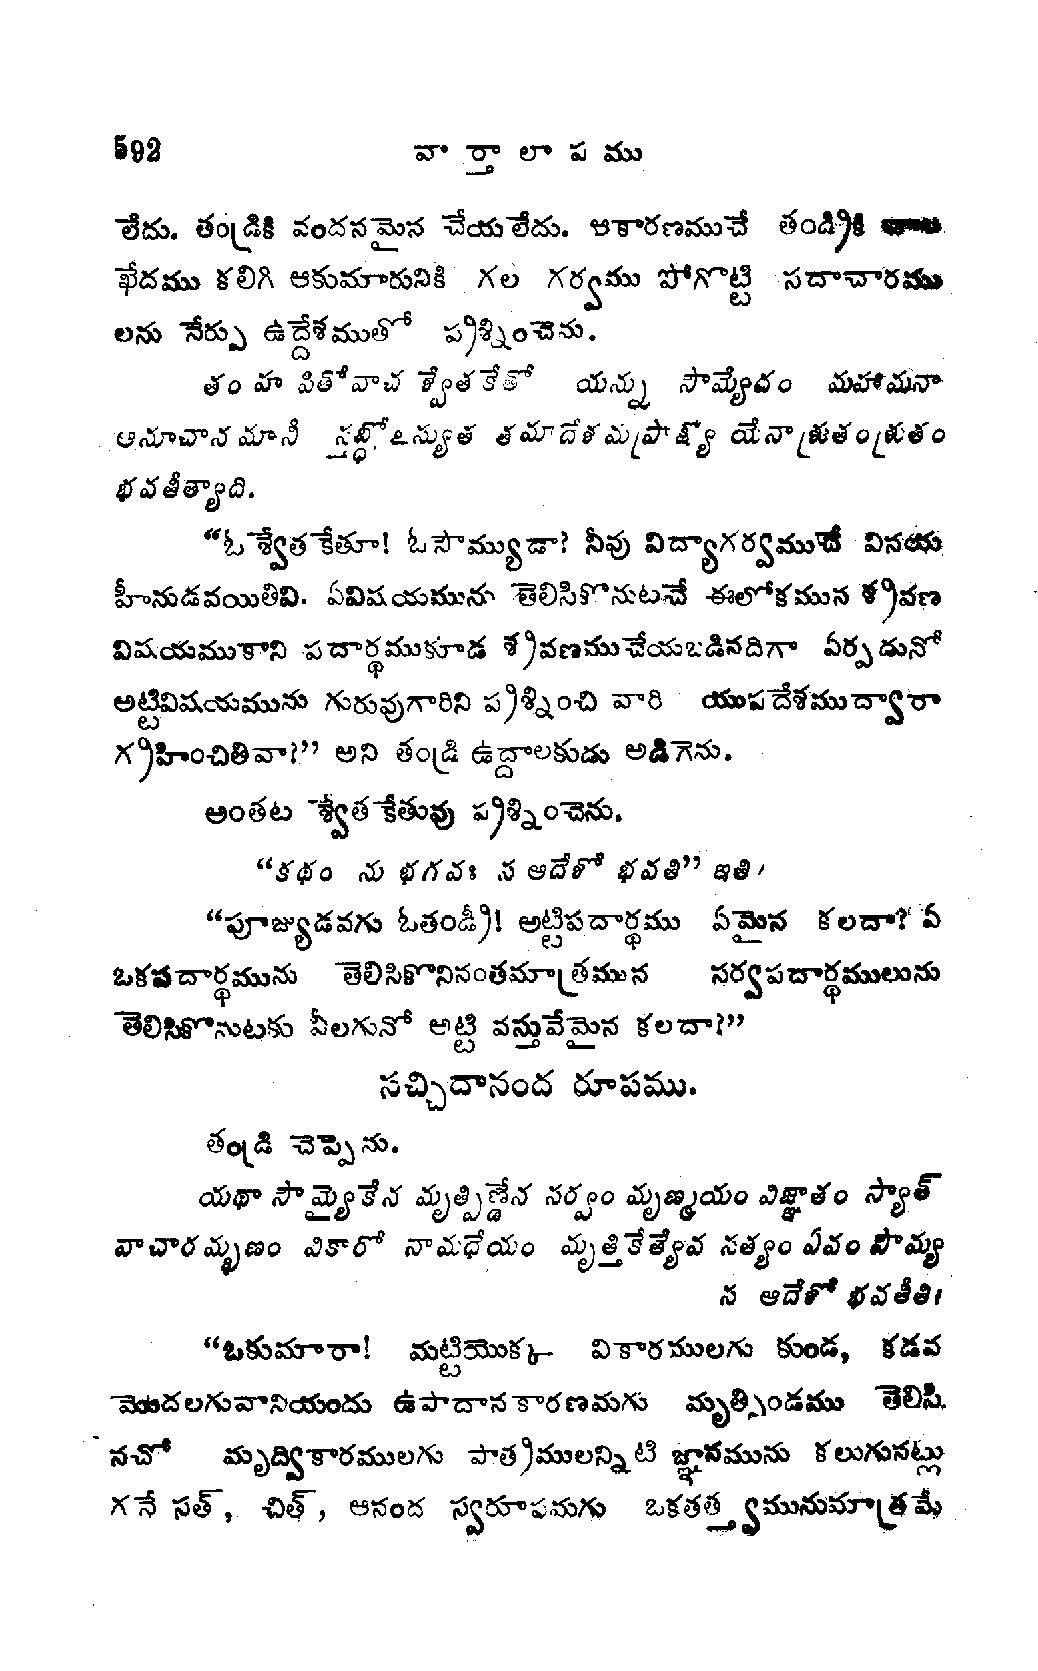 592 వార్తాలాపము
లేదు. తండ్రికి వందనమైన చేయలేదు. ఆకారణముచే తండ్రికి చాల
ఖేదము కలిగి ఆకుమారునికి గల గర్వము పోగొట్టి సదాచారము
లను నేర్పు ఉద్దేశముతో ప్రశ్నించెను.
తం హ పితోవాచ శ్వేతకేతో యన్ను సౌమ్యేదం మహామనా
అనూచానమానీ స్తబ్ధోఽస్యుత తమాదేశమప్రాక్ష్యో యేనాశ్రుతంశ్రుతం
భవతీత్యాది.
“ఓశ్వేతకేతూ! ఓసౌమ్యుడా? నీవు విద్యాగర్వముచే వినయ
హీనుడవయితివి. ఏవిషయమును తెలిసికొనుటచే ఈలోకమున శ్రవణ
విషయముకాని పదార్థముకూడ శ్రవణముచేయబడినదిగా ఏర్పడునో
అట్టివిషయమును గురువుగారిని ప్రశ్నించి వారి యుపదేశముద్వారా
గ్రహించితివా?” అని తండ్రి ఉద్దాలకుడు అడిగెను.
అంతట శ్వేతకేతువు ప్రశ్నించెను.
“కథం ను భగవః స ఆదేశో భవతి” ఇతి।
“పూజ్యుడవగు ఓతండ్రీ! అట్టిపదార్థము ఏమైన కలదా? ఏ
ఒకపదార్థమును తెలిసికొనినంతమాత్రమున సర్వపదార్థములును
తెలిసికొనుటకు వీలగునో అట్టి వస్తువేమైన కలదా?”
సచ్చిదానంద రూపము.
తండ్రి చెప్పెను.
యథా సౌమ్యైకేన మృత్పిణ్డేన సర్వం మృణ్మయం విజ్ఞాతం స్యాత్
వాచారమ్భణం వికారో నామధేయం మృత్తికేత్యేవ సత్యం ఏవం సౌమ్య
స ఆదేశో భవతీతి।
“ఓకుమారా! మట్టియొక్క వికారములగు కుండ, కడవ
మొదలగువానియందు ఉపాదానకారణమగు మృత్పిండము తెలిసి
నచో మృద్వికారములగు పాత్రములన్నిటి జ్ఞానమును కలుగునట్లు
గనే సత్, చిత్, ఆనంద స్వరూపమగు ఒకతత్త్వమునుమాత్రమే